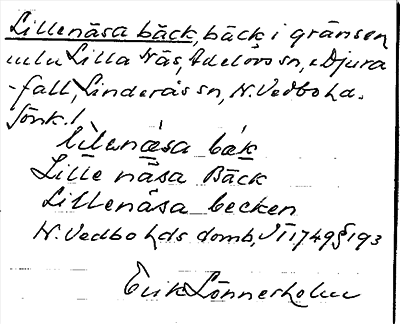 Lillenäsa bäck, bäck i gränsen
mlu Lilla Näs, Adelövs sn, o Djura
-fall, Linderås sn, N. Vedbo hd.
Jönk. l
lilenäsa bäk
Lille näsa Bäck
Lillenäsa becken
N. Vedbo hds domb, VT 1749 § 193
Erik Lönnerholm